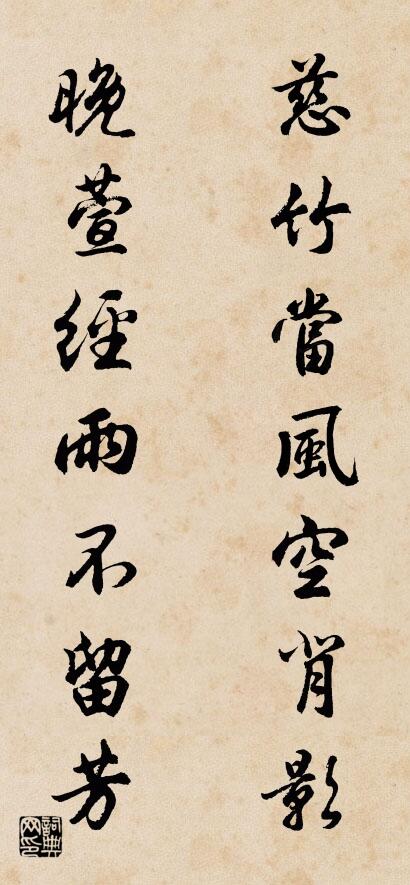 慈竹當風空肖影
晚萱經雨不留芳
詞典網印